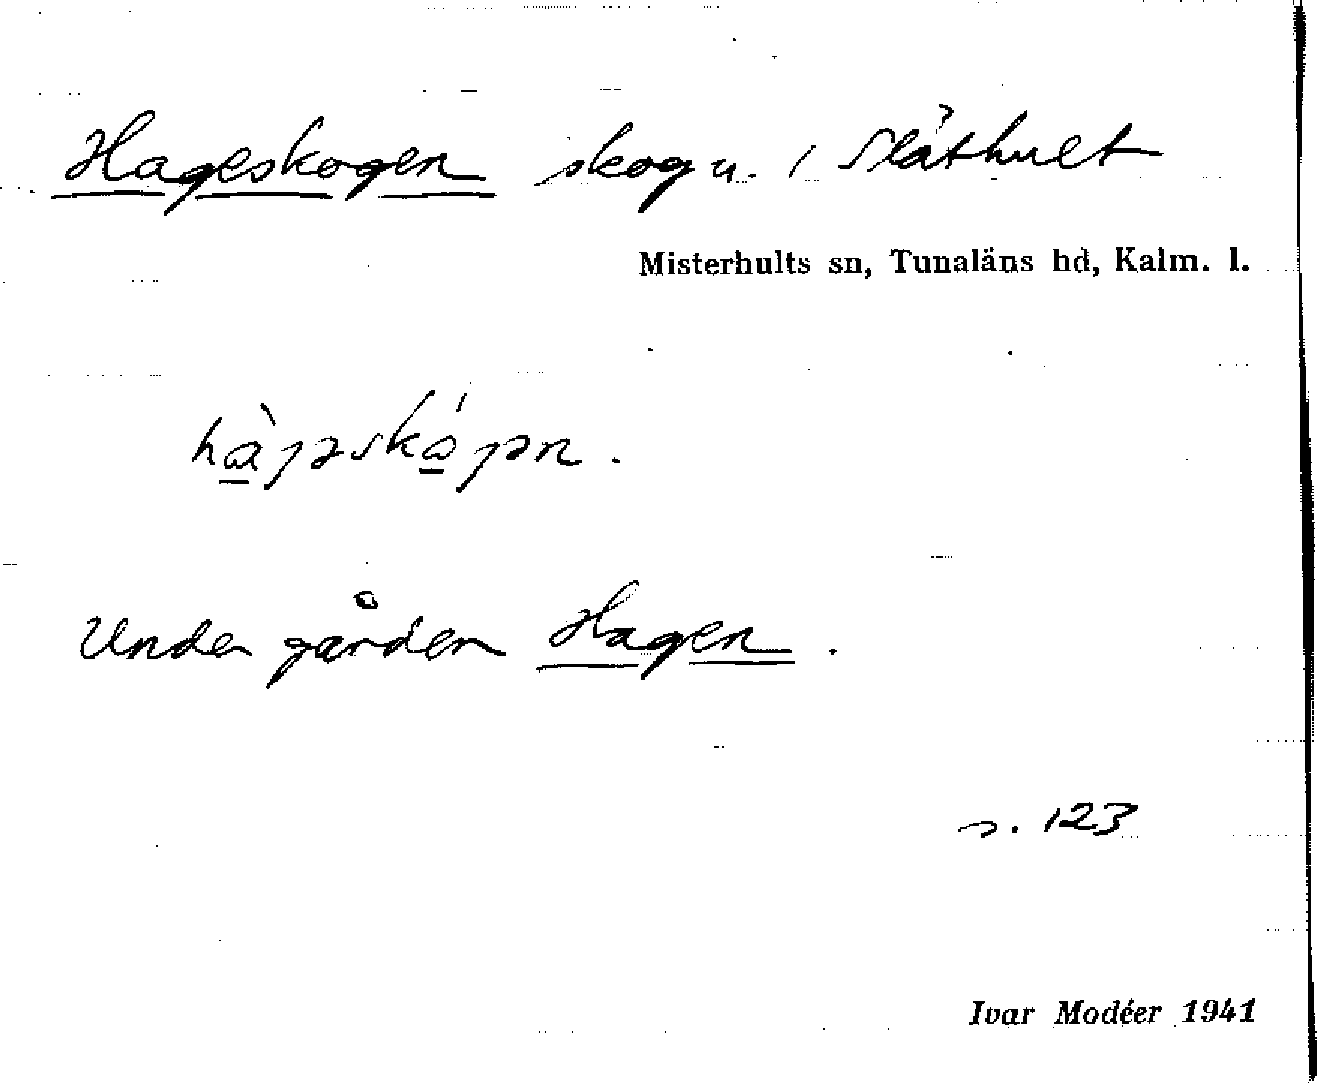 Hageskogen skog u. / Släthult
Misterhults sn, Tunaläns hd, Kalm. l.
Under gården Hagen.
s. 123
Ivar Modéer 1941